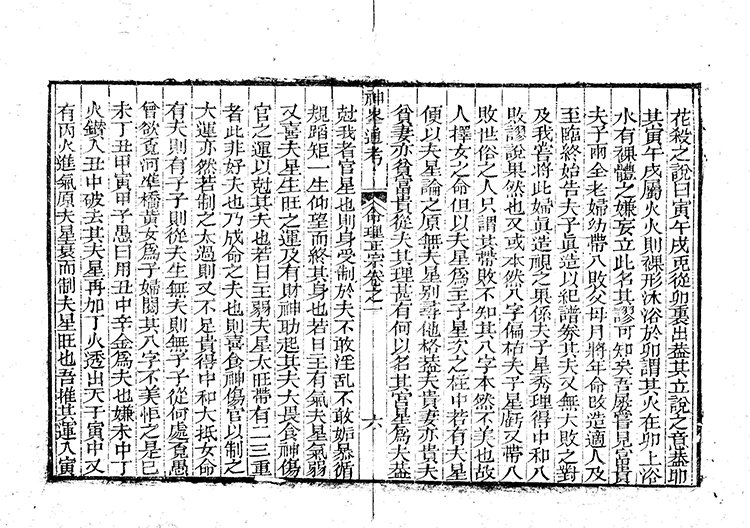 花殺之說曰寅午戌兎從卯裏出葢其立說之音葢卽
其寅午戌屬火火則裸形沐浴於卯謂其火在卯上浴
水有裸體之嫌妄立此名其謬可知矣吾屢嘗見富貴
夫子兩全老婦幼帶八敗父母月將年命敗造適人及
至臨終始告夫子眞造以紀譜券其夫又無大敗之對
及我嘗將此婦眞造視之果係夫子星秀理得中和八
敗謬說果然也又或本然八字偏枯夫子星虧又帶八
敗世俗之人只謂其帶敗不知其八字本然不美也故
人擇女之命但以夫星爲主子星次之柱中若有夫星
便以夫星論之原無夫星別尋他格葢夫貴妻亦貴夫
貧妻亦貧富貴從夫其理甚有何以名其官星爲夫葢
神峯通考 命理正宗卷之一 六
尅我者官星也則身受制於夫不敢淫乱不敢妬暴循
規蹈矩一生仰望而終其身也若日主有氣夫星氣弱
又喜夫星生旺之運及有財神助起其夫大畏食神傷
官之運以尅其夫也若日主弱夫星太旺帶有二三重
者此非好夫也乃成命之夫也則喜食神傷官以制之
大運亦然若制之太過則又不足貴得中和大抵女命
有夫則有子子則從夫生無夫則無子子從何處覔愚
曾欲覔河準橋黃女爲子婦閱其八字不美拒之是巳
未丁丑甲寅甲子愚曰用丑中辛金爲夫也嫌未中丁
火鑽入丑中破去其夫星再加丁火透出天干寅中又
有丙火進氣原夫星衰而制夫星旺也吾推其運入寅